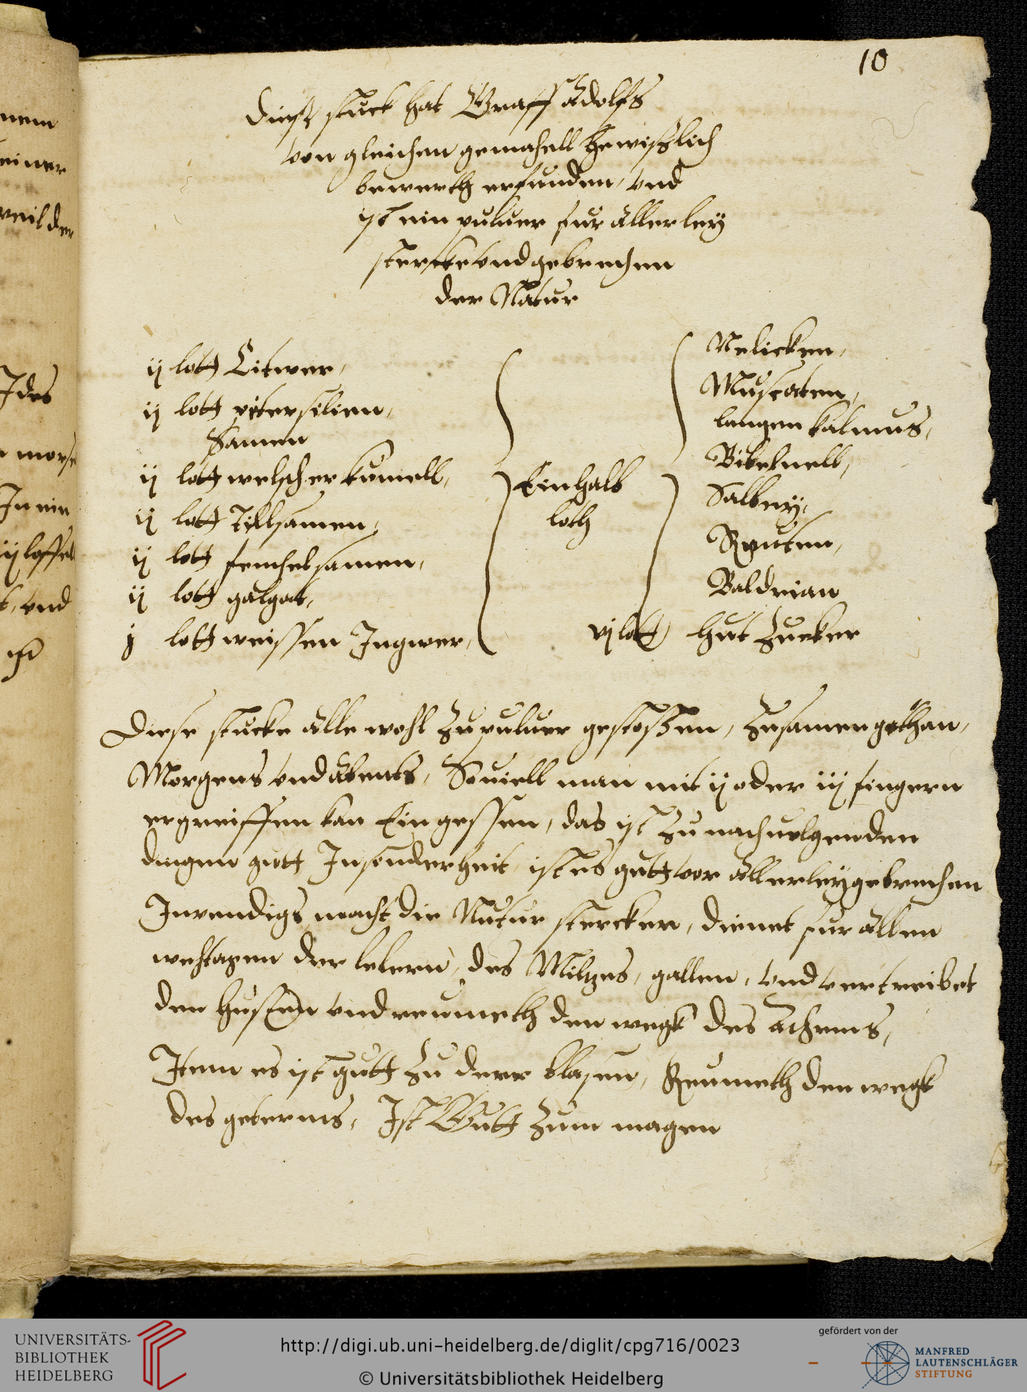 10
Dieß stuck hat Graff Adolfs
von gleichen gemahell gewißlich
bewerth erfunden, vnd
ist ein puluer fur allerley
stercke vnd gebrechen
der Natur
ij lott Citwer,
ij lott petersilien,
Samen
ij lott welscher kumell,
ij lott Tillsamen,
ij lott fenchelsamen,
ij lott galgat,
j lott weissen Ingwer,
Ein halb
loth
Nelicken,
Muscaten,
langen kalmus,
Bibelnell,
Salbey,
Rauten,
Baldrian
vj lott hut Zucker
Diese stucke alle wohl zu puluer gestoßen, zusamen gethan,
Morgens vnd Abents, Souiell man mit ij oder iij fingern
ergreiffen kan Ein gessen, das ist zu nachuolgenden
dingen gutt Insonderheit, ist es gutt vor allerley gebrechen
Inwendigs macht die Natur stercker, dienet fur allen
wehtagen der lebern, des Miltzes, gallen, vnd vertreibet
den husten vnd reumeth den wegk des Athems,
Item es ist gutt zu derr blasen, Reumeth den wegk
des geberms, Ist Gutt zum magen
nem
einer
weil der
Jdes
morse
In ein
ij loffel
vnd
UNIVERSITÄTS-
BIBLIOTHEK
HEIDELBERG
http://digi.ub.uni-heidelberg.de/diglit/cpg716/0023
© Universitätsbibliothek Heidelberg
gefördert von der
MANFRED
LAUTENSCHLÄGER
STIFTUNG